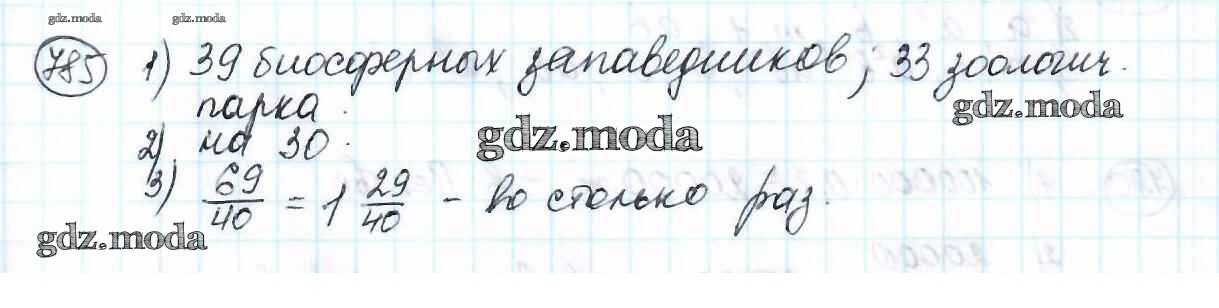 gdz.moda gdz.moda
785 1) 39 биосферных заповедников; 33 зоологич.
парка.
gdz.moda
2) на 30.
gdz.moda
3) 69/40 = 1 29/40 - во столько раз.
gdz.moda
10000
20000
2) 20000